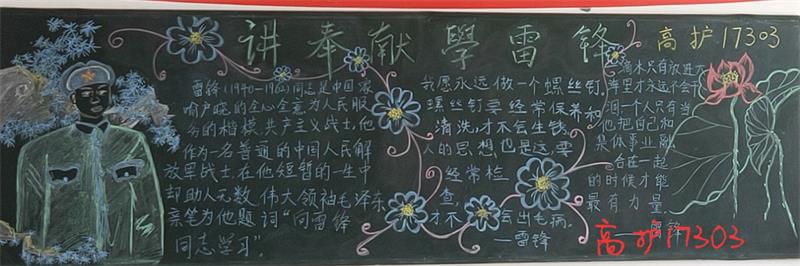 讲奉献 學雷锋
高护17303
雷锋(1940-1962)同志是中国家
喻户晓的全心全意为人民服
务的楷模,共产主义战士,他
作为一名普通的中国人民解
放军战士在他短暂的一生中
却助人无数,伟大领袖毛泽东
亲笔为他题词“向雷锋
同志学习”.
我愿永远做一个螺丝钉,
螺丝钉要经常保养和
清洗,才不会生锈.
人的思想也是这,要
经常检
查,
才不会出毛病.
—雷锋
滴水只有放进大
海里才永远不会干
涸一个人只有当
他把自己和
集体事业融
合在一起
的时候才能
最有力量
—雷锋
高护17303